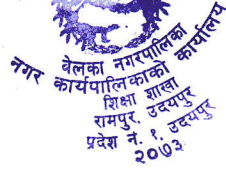 बेलका नगरपालिका
नगर कार्यपालिकाको कार्यालय
शिक्षा शाखा
रामपुर, उदयपुर
प्रदेश नं. १, उदयपुर
२०७३